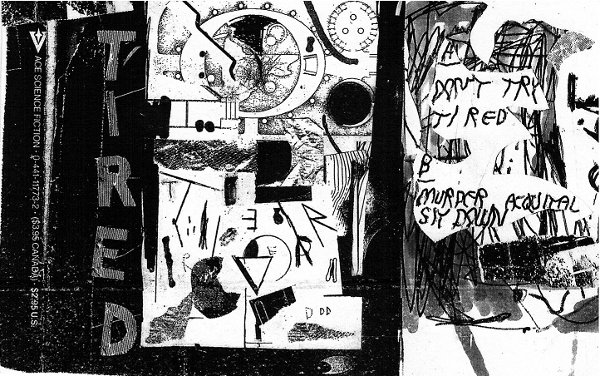 TIRED
ACE SCIENCE FICTION · 0-441-11773-2 · ($3.95 CANADA) · $2.95 U.S.
T I R E D
D DD
A
DON'T TRY
TIRED
B
MURDER ACQUITAL
SIT DOWN